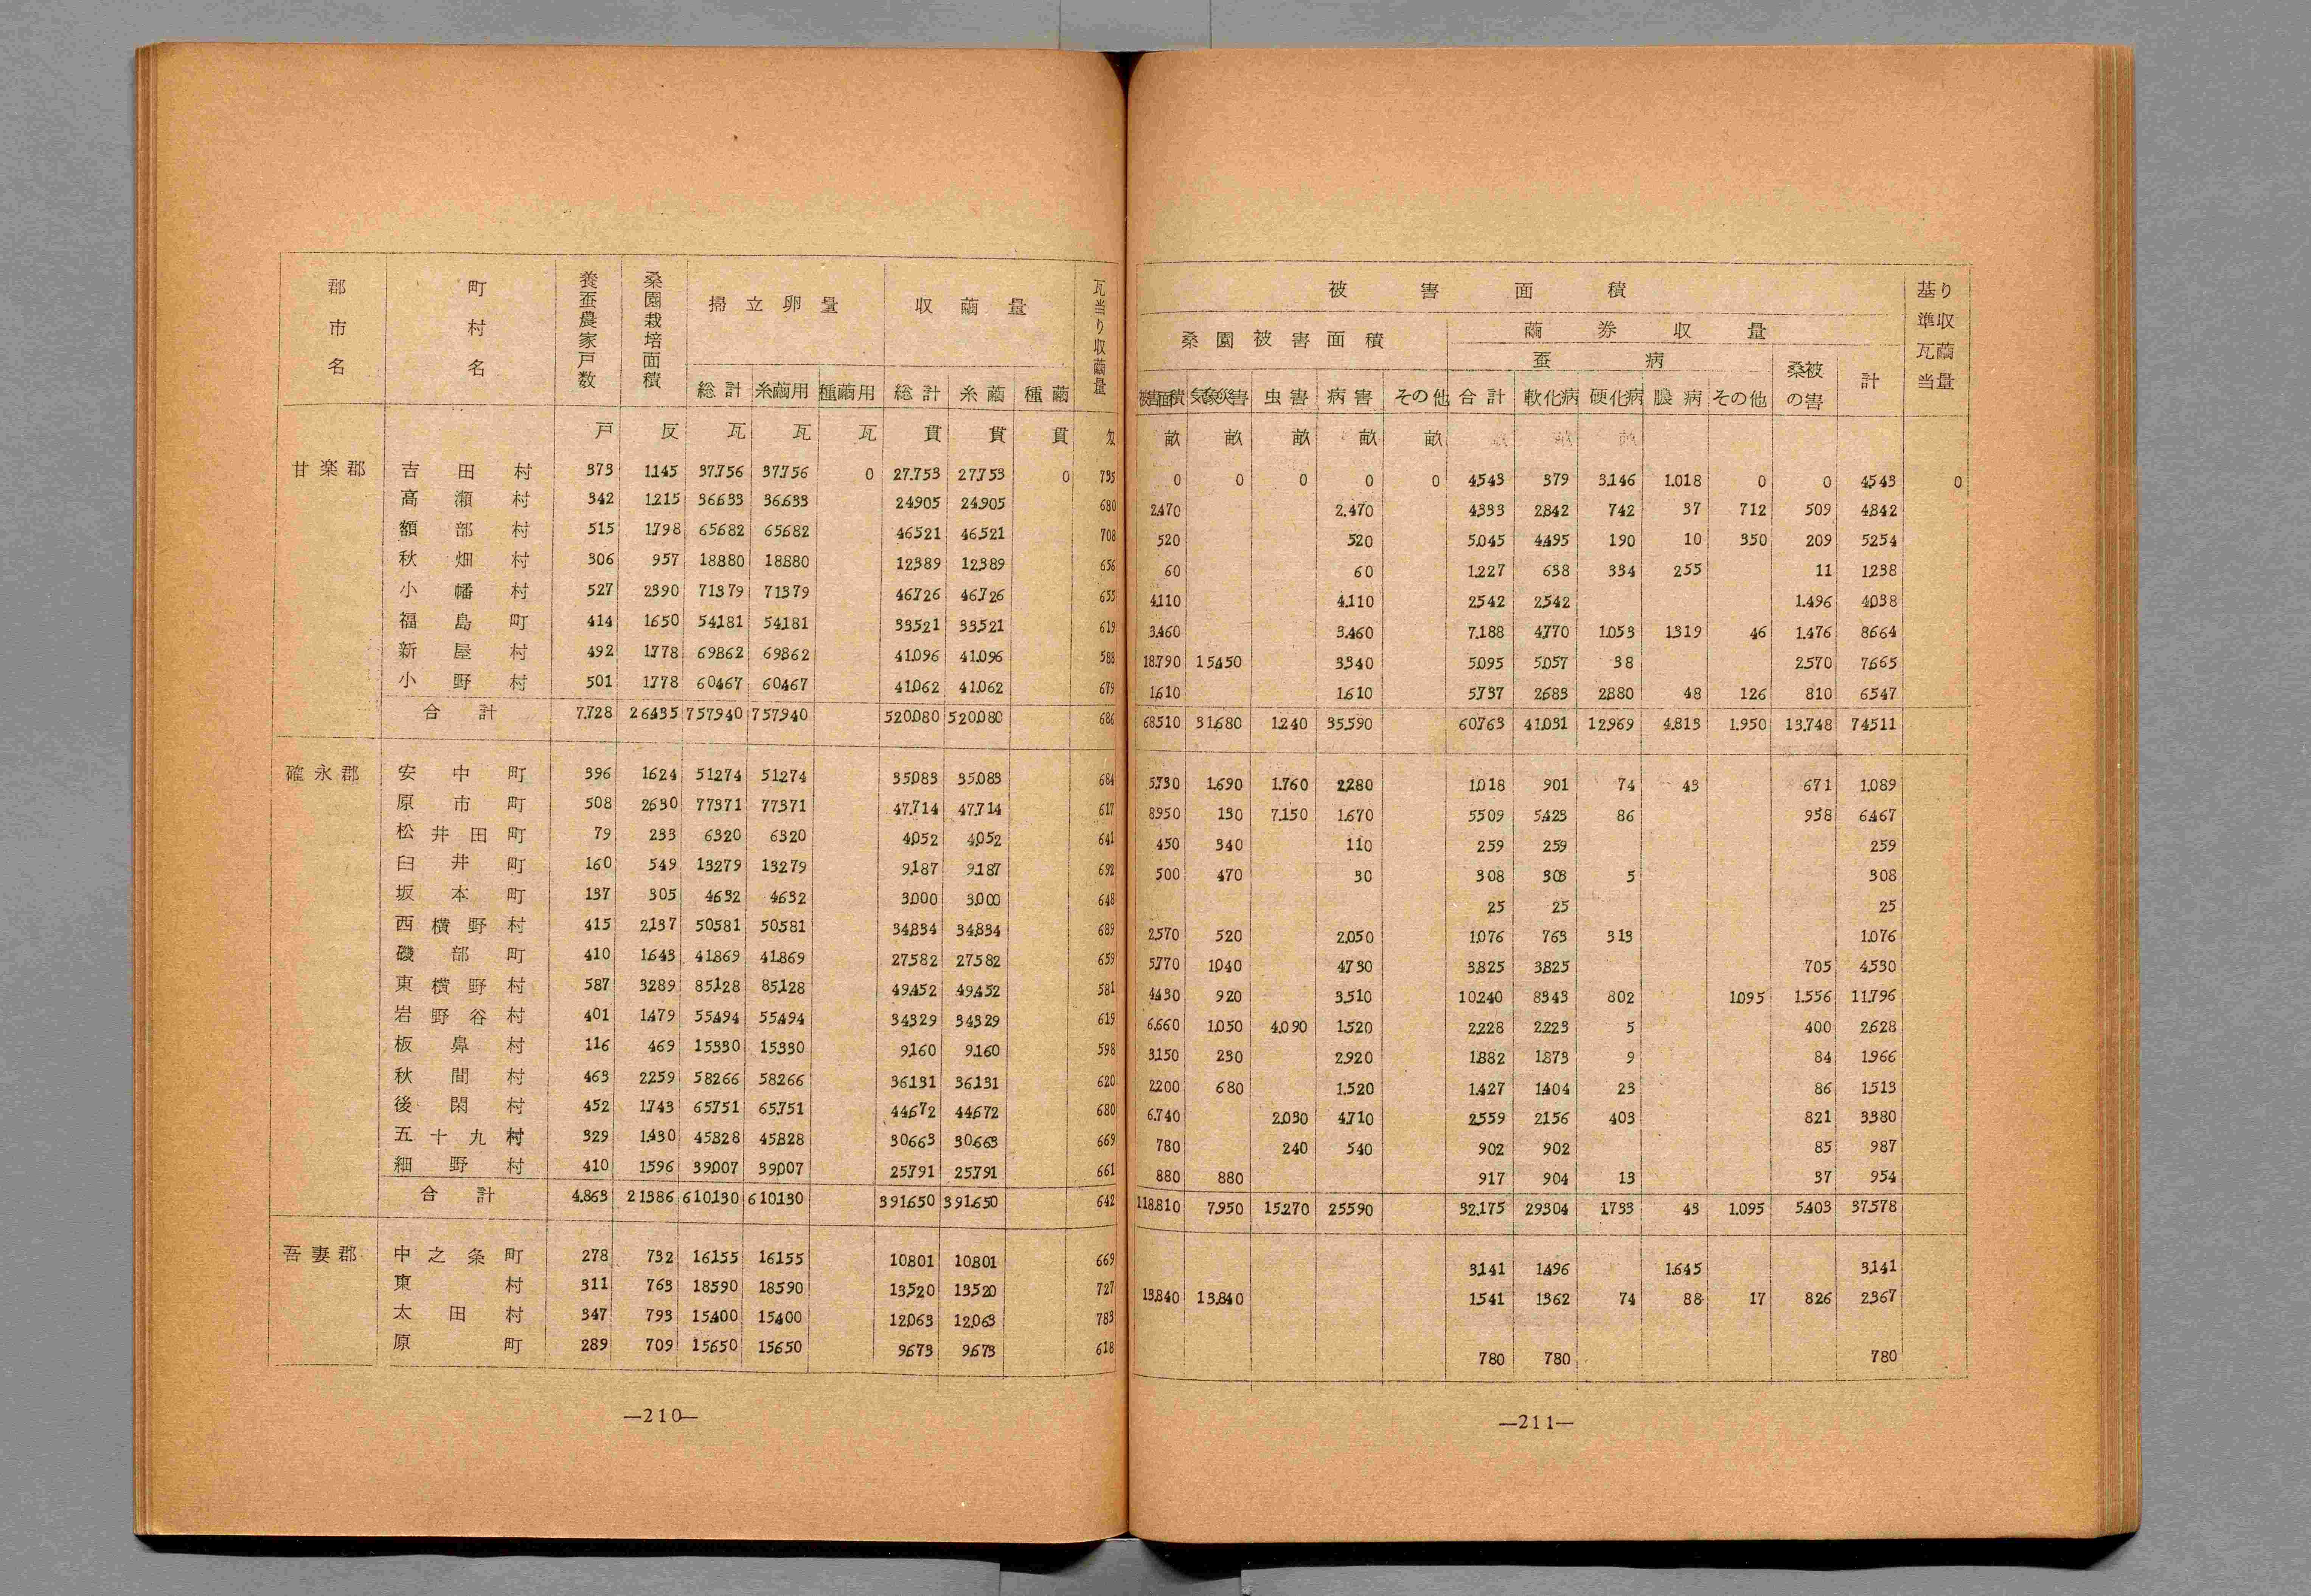 郡市名 町村名 養蚕農家戸数 桑園栽培面積 掃立卵量 収繭量 瓦当り収繭量
総計 糸繭用 種繭用 総計 糸繭 種繭
戸 反 瓦 瓦 瓦 貫 貫 貫 匁
甘楽郡 吉田村 373 1.145 37.756 37.756 0 27.753 27.753 0 735
高瀬村 342 1.215 36.633 36.633 24.905 24.905 680
額部村 515 1.798 65.682 65.682 46.521 46.521 708
秋畑村 306 957 18.880 18.880 12.389 12.389 656
小幡村 527 2.390 71.379 71.379 46.726 46.726 655
福島町 414 1.650 54.181 54.181 33.521 33.521 619
新屋村 492 1.778 69.862 69.862 41.096 41.096 588
小野村 501 1.778 60.467 60.467 41.062 41.062 679
合計 7.728 26.435 757.940 757.940 520.080 520.080 686
確永郡 安中町 396 1.624 51.274 51.274 35.083 35.083 684
原市町 508 2.630 77.371 77.371 47.714 47.714 617
松井田町 79 233 6.320 6.320 4.052 4.052 641
臼井町 160 549 13.279 13.279 9.187 9.187 692
坂本町 137 305 4.632 4.632 3.000 3.000 648
西横野村 415 2.137 50.581 50.581 34.834 34.834 689
磯部町 410 1.643 41.869 41.869 27.582 27.582 659
東横野村 587 3.289 85.128 85.128 49.452 49.452 581
岩野谷村 401 1.479 55.494 55.494 34.329 34.329 619
板鼻村 116 469 15.330 15.330 9.160 9.160 598
秋間村 463 2.259 58.266 58.266 36.131 36.131 620
後閑村 452 1.743 65.751 65.751 44.672 44.672 680
五十九村 329 1.430 45.828 45.828 30.663 30.663 669
細野村 410 1.596 39.007 39.007 25.791 25.791 661
合計 4.863 21.386 610.130 610.130 391.650 391.650 642
吾妻郡 中之条町 278 732 16.155 16.155 10.801 10.801 669
東村 311 763 18.590 18.590 13.520 13.520 727
太田村 347 793 15.400 15.400 12.063 12.063 783
原町 289 709 15.650 15.650 9.673 9.673 618
—210—
被害面積 基準瓦当り収繭量
桑園被害面積 繭券収量
蚕病 桑被の害 計
被害面積 気象災害 虫害 病害 その他 合計 軟化病 硬化病 膿病 その他
畝 畝 畝 畝 畝 畝 畝 畝
0 0 0 0 0 4.543 379 3.146 1.018 0 0 4.543 0
2.470 2.470 4.333 2.842 742 37 712 509 4.842
520 520 5.045 4.495 190 10 350 209 5.254
60 60 1.227 638 334 255 11 1.238
4.110 4.110 2.542 2.542 1.496 4.038
3.460 3.460 7.188 4.770 1.053 1.319 46 1.476 8.664
18.790 15.450 3.340 5.095 5.057 38 2.570 7.665
1.610 1.610 5.737 2.683 2.880 48 126 810 6.547
68.510 31.680 1.240 35.590 60.763 41.031 12.969 4.813 1.950 13.748 74.511
5.730 1.690 1.760 2.280 1.018 901 74 43 671 1.089
8.950 130 7.150 1.670 5.509 5.423 86 958 6.467
450 340 110 259 259 259
500 470 30 308 303 5 308
25 25 25
2.570 520 2.050 1.076 763 313 1.076
5.770 1.040 4.730 3.825 3.825 705 4.530
4.430 920 3.510 10.240 8.343 802 1.095 1.556 11.796
6.660 1.050 4.090 1.520 2.228 2.223 5 400 2.628
3.150 230 2.920 1.882 1.873 9 84 1.966
2.200 680 1.520 1.427 1.404 23 86 1.513
6.740 2.030 4.710 2.559 2.156 403 821 3.380
780 240 540 902 902 85 987
880 880 917 904 13 37 954
118.810 7.950 15.270 25.590 32.175 29.304 1.733 43 1.095 5.403 37.578
3.141 1.496 1.645 3.141
13.840 13.840 1.541 1.362 74 88 17 826 2.367
780 780 780
—211—